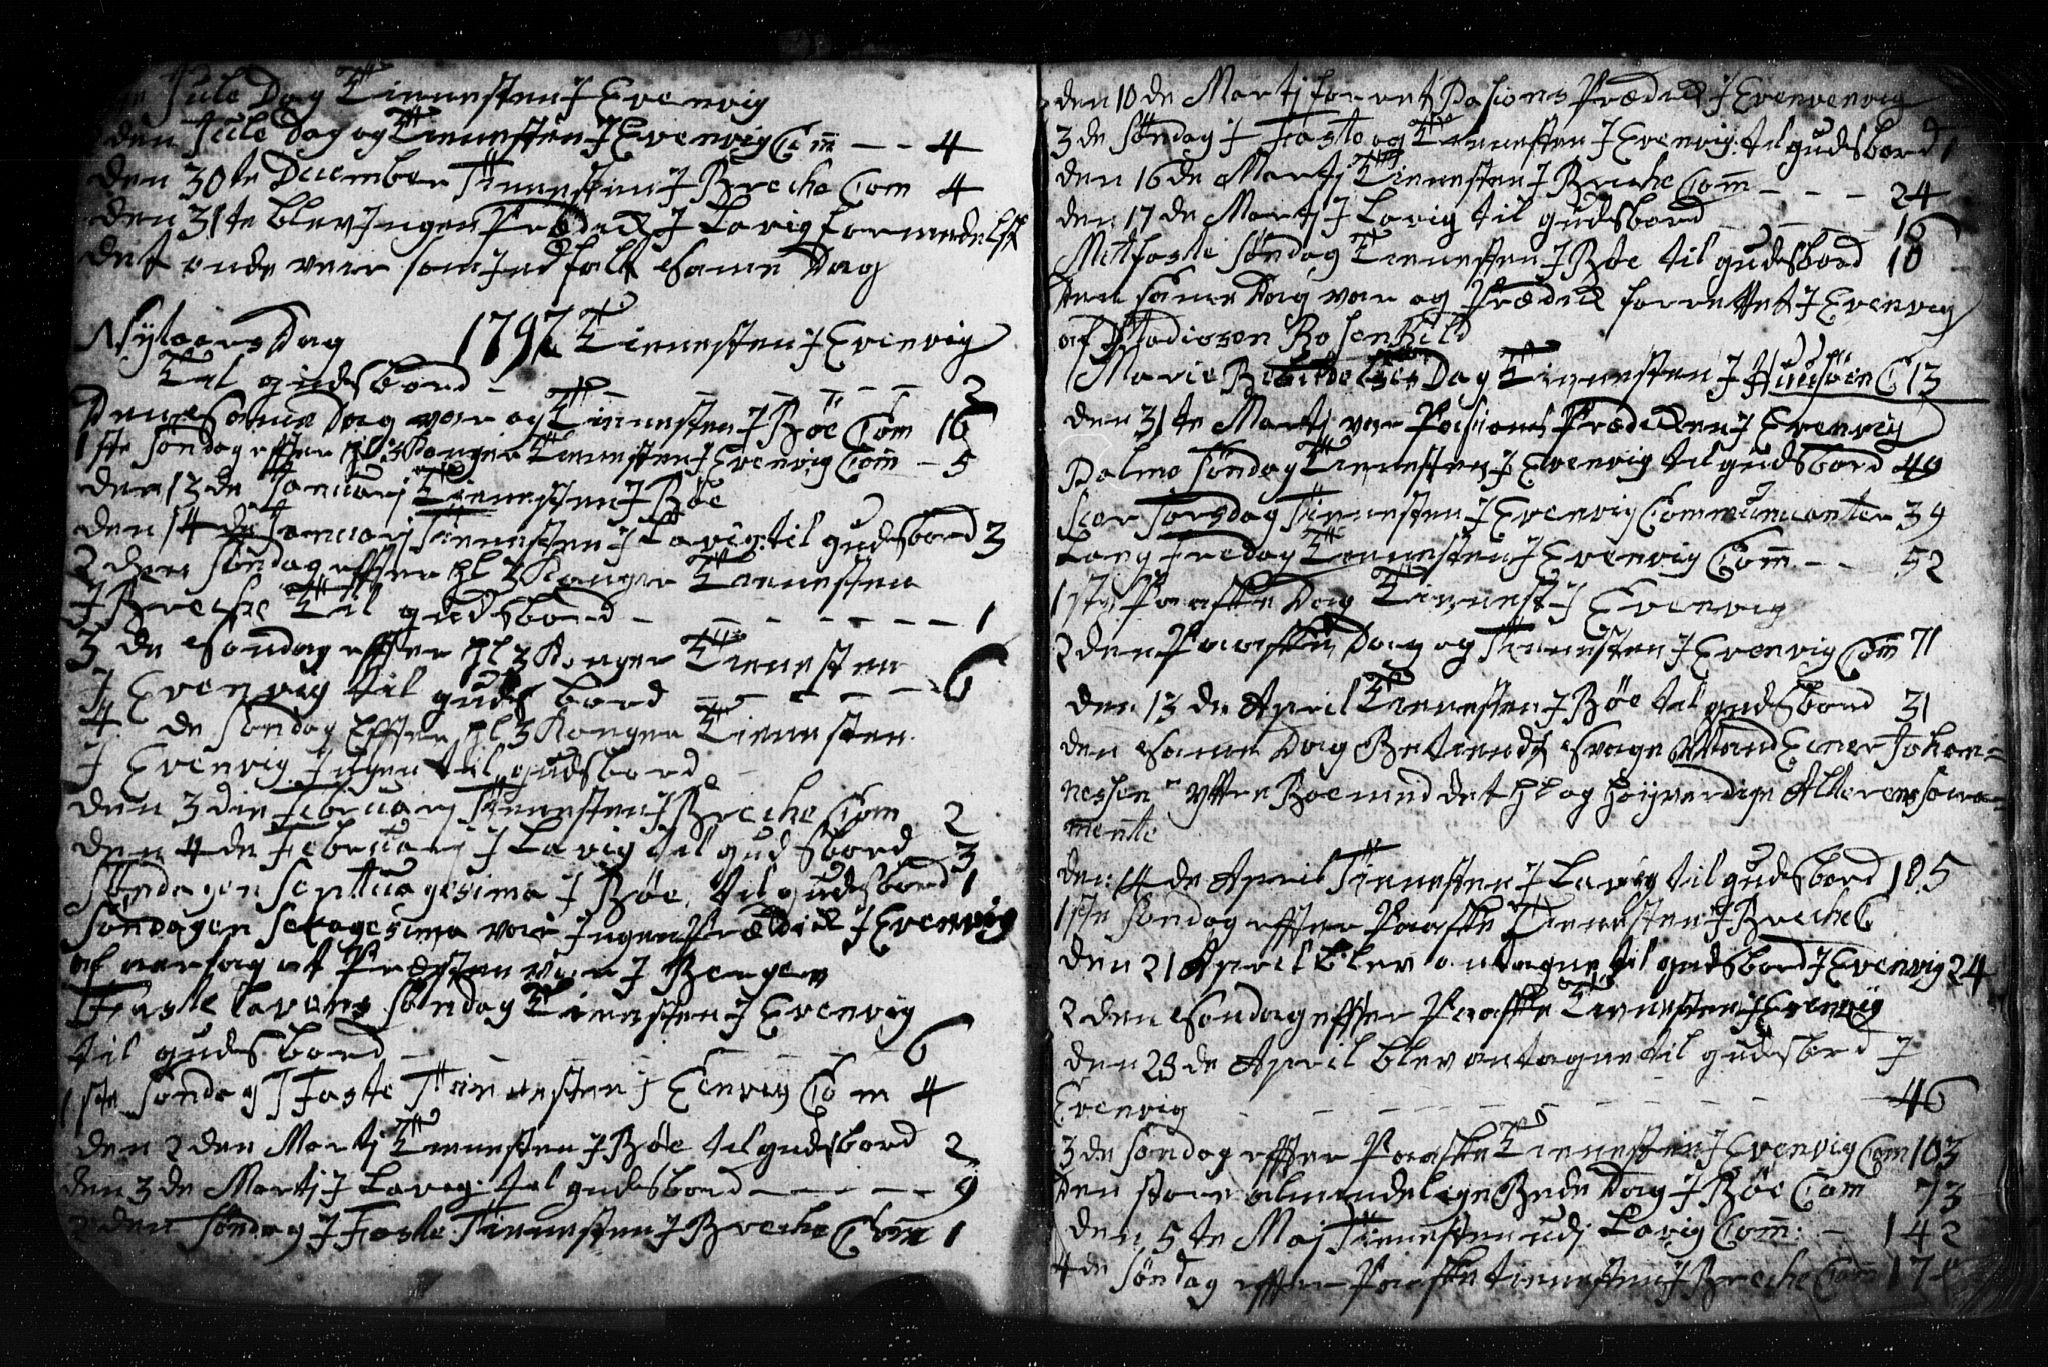 Jule Dag Tienesten J Evenvig
den Jule Dag og Tienesten J Evenvig Com̄ - - 4
den 30te December Tienesten J Breche Com 4
den 31te blev Jngen Prædick J Lavig formedelst
det onde veir som Jndfalt same Dag
Nytaars Dag 1797 Tienesten J Evenvig
Til gudsbord - - - - - - 2
Den same Dag var og Tienesten J Böe Com 16
1ste Söndag efter hl 3 Konger Tienesten J Evenvig Com̄ - 5
den 13de Januarj Tienesten J Böe
den 14de Januarj Tienesten J Lavig til gudsbord 3
2den Söndag efter hl 3 Konger Tienesten
J Breche Til gudsbord - - - - - - - 1
3de Söndag efter hl 3 Konger Tienesten
J Evenvig til guds bord - - - - - 6
4de Söndag Efter hl 3 Konger Tienesten
J Evenvig Jngen til gudsbord
den 3die Februarj Tienesten J Breche Com 2
den 4de Februarj J Lavig til gudsbord 3
Söndagen Septuagesima J Böe til gudsbord 1
Söndagen Sexagesima var Jngen Prædick J Evenvig
af aarsag at Præsten var J Bergen
Fastelavens Söndag Tienesten J Evenvig
til gudsbord - - - - - - 6
1ste Söndag J Faste Tienesten J Evenvig Com 4
den 2den Martj Tienesten J Böe til gudsbord 2
den 3de Martj J Lavig til gudsbord - - - - - 9
2den Söndag J Faste Tienesten J Breche Com 1
den 10de Martj forret Pasions Prædick J Evenvig
3de Söndag J Faste og Tienesten J Evenvig til gudsbord 1
den 16de Martj Tienesten J Breche Com̄ - - - 24
den 17de Martj J Lavig til gudsbord - - - - 16
Mitfaste Söndag Tienesten J Böe til gudsbord 18
den same Dag var og Prædick forrettet J Evenvig
af Rosenkild
Marie Dag Tienesten J C 13
den 31te Martj var Pasions Prædicken J Evenvig
Palme Söndag Tienesten J Evenvig til gudsbord 49
Skier Torsdag Tienesten J Evenvig Communicanter 39
Lang Fredag Tienesten J Evenvig Com̄ - - 52
1ste Paaske Dag Tienest J Evenvig
2den Paaske Dag og Tienesten J Evenvig Com 71
den 13de April Tienesten J Böe til gudsbord 31
den same Dag Betiendt svage Mand Einer Johan=
nessen yttre Böe med det hl og höyverdige Alterens Sacra=
mente
den 14de April Tienesten J Lavig til gudsbord 105
1ste Söndag efter Paaske Tienesten J Breche C
den 21 April blev antagne til gudsbord J Evenvig 24
2den Söndag efter Paaske Tienesten J Evenvig
den 28de April blev antagne til gudsbord J
Evenvig - - - - - - - - - 46
3de Söndag efter Paaske Tienesten J Evenvig Com 103
Den store almindelige Bede Dag J Böe Com 73
den 5te Maj Tienesten udj Lavig Com̄: - 142
4de Söndag efter Paaske tienesten J Breche Com̄